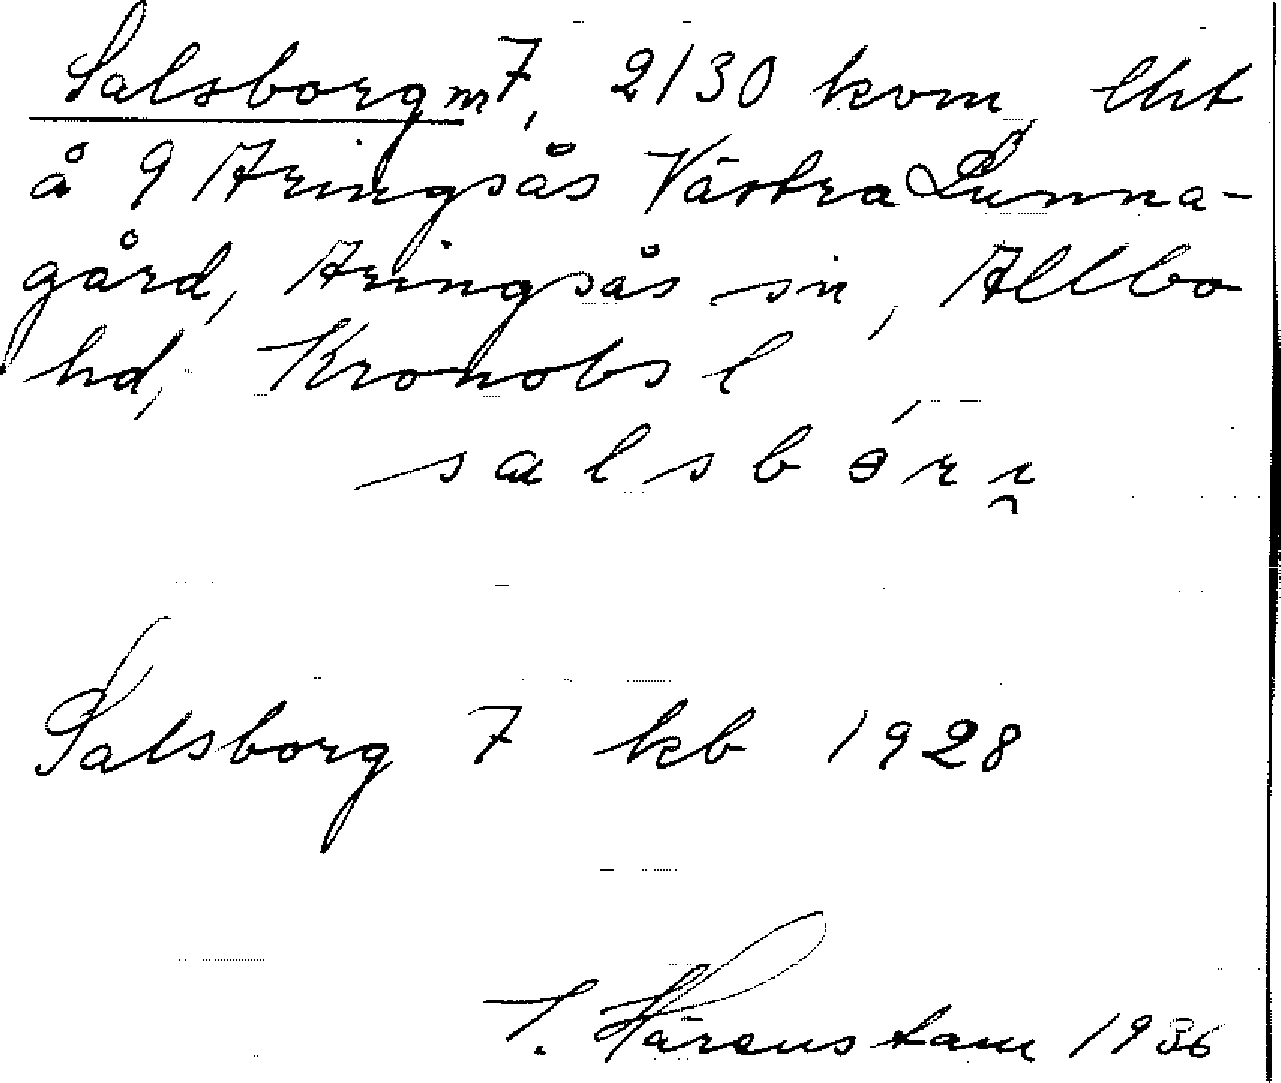 Salsborg nr 7, 2130 kvm, lht
å 9 Aringsås Västra Lunna-
gård, Aringsås sn, Allbo
hd, Kronobs l
salsbór
Salsborg 7 kb 1928
T. Härenstam 1936